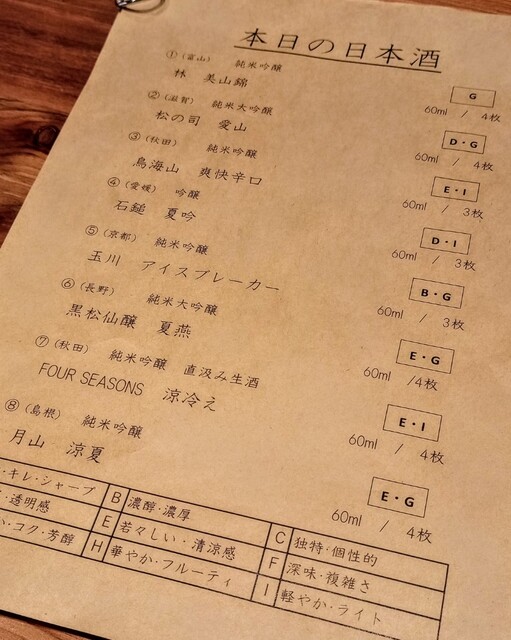 本日の日本酒
①(富山) 純米吟醸
林 美山錦
G
60ml / 4枚
②(滋賀) 純米大吟醸
松の司 愛山
D・G
60ml / 4枚
③(秋田) 純米吟醸
鳥海山 爽快辛口
E・I
60ml / 3枚
④(愛媛) 吟醸
石鎚 夏吟
D・I
60ml / 3枚
⑤(京都) 純米吟醸
玉川 アイスブレーカー
B・G
60ml / 3枚
⑥(長野) 純米大吟醸
黒松仙醸 夏燕
E・G
60ml /4枚
⑦(秋田) 純米吟醸 直汲み生酒
FOUR SEASONS 涼冷え
E・I
60ml / 4枚
⑧(島根) 純米吟醸
月山 涼夏
E・G
60ml / 4枚
・キレ・シャープ B 濃醇・濃厚 C 独特・個性的
・透明感 E 若々しい・清涼感 F 深味・複雑さ
・コク・芳醇 H 華やか・フルーティ I 軽やか・ライト